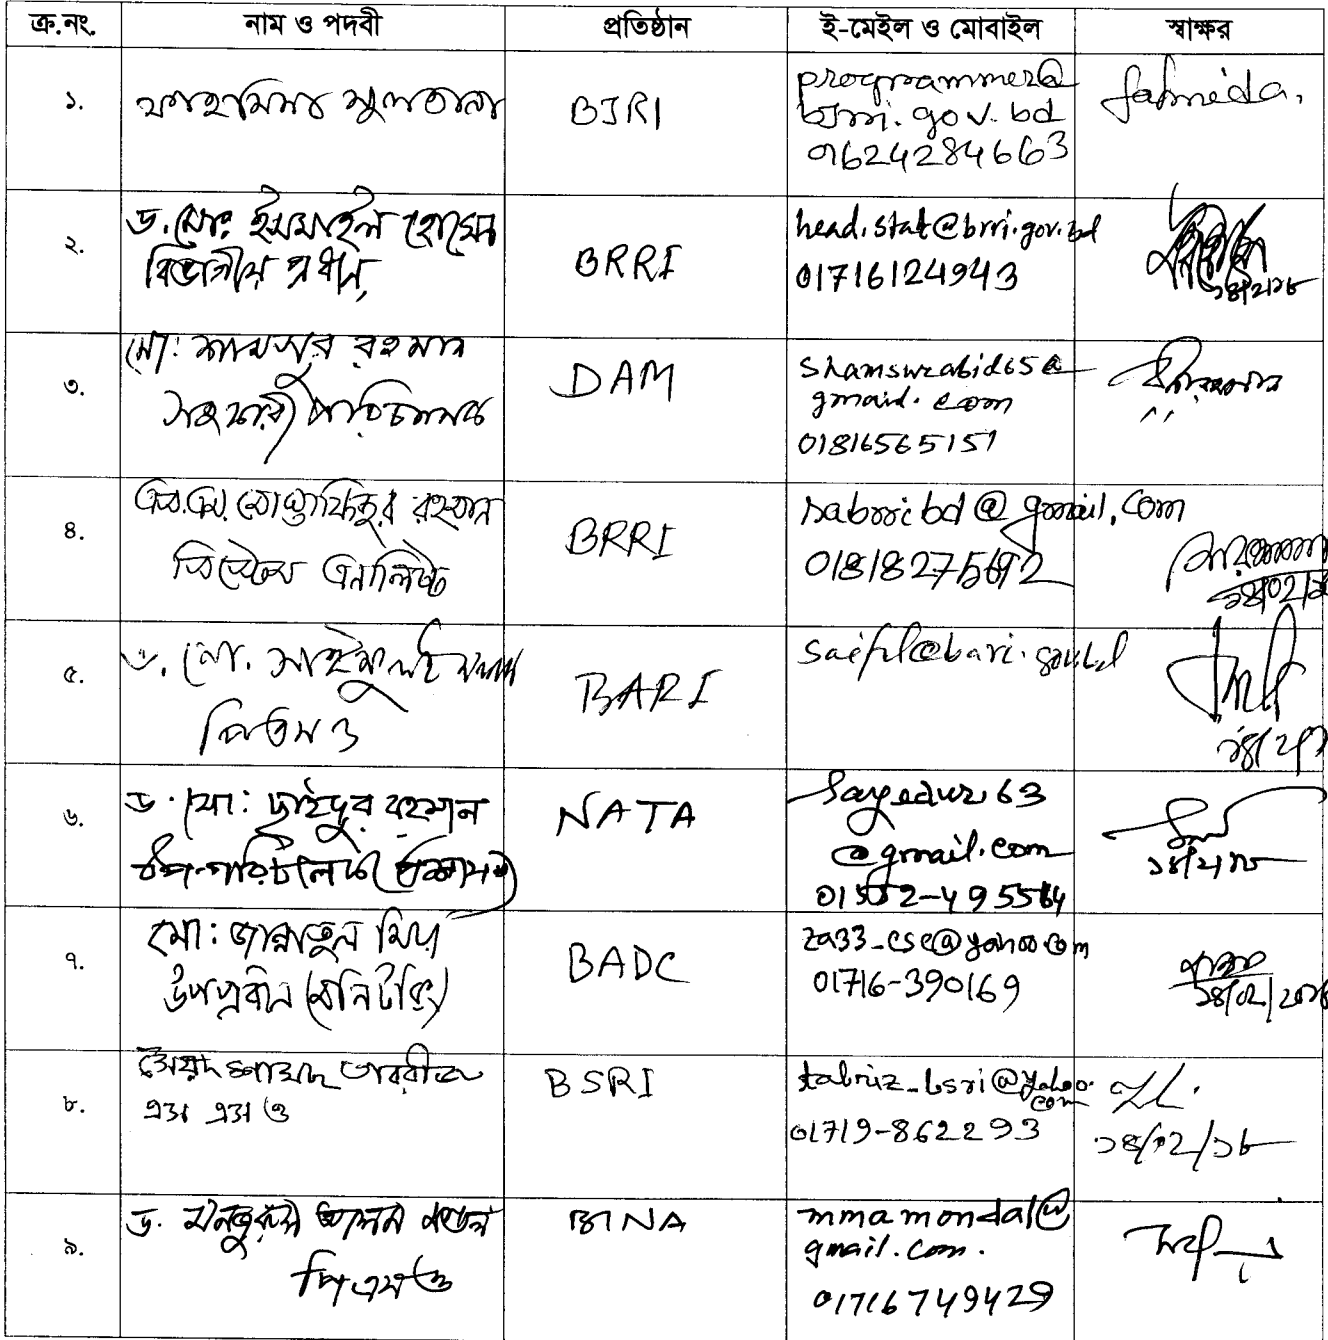 ক্র.নং. নাম ও পদবী প্রতিষ্ঠান ই-মেইল ও মোবাইল স্বাক্ষর
১. ফাহমিদা সুলতানা BJRI programmer@
bjri.gov.bd
Fahmida.
২. ড. মোঃ ইসমাইল হোসেন
বিভাগীয় প্রধান, BRRI head.stat@brri.gov.bd
01716124943
৩. মো: শামসুর রহমান
সহকারী পরিচালক DAM
gmail.com
01816565151
৪. এস.এম. মোস্তাফিজুর রহমান
সিস্টেম এনালিস্ট BRRI @gmail.com
৫. ড. মো. সাইফুল ইসলাম
পিএসও BARI
৬. ড. মো: ছাইদুর রহমান
উপ-পরিচালক (প্রশাসন) NATA sayedur63
@gmail.com
১৪/২/১৮
৭. মো: জান্নাতুল মিয়া
উপপ্রধান (মনিটরিং) BADC za33_cse@yahoo.com
01716-390169
৮. সৈয়দ তাবরীজ
এস এস ও BSRI tabriz_bsri@yahoo.
com
01719-862293
১৪/০২/১৮
৯. ড. মনজুরুল আলম মন্ডল
পিএসও BINA mmamondal@
gmail.com.
01716749429